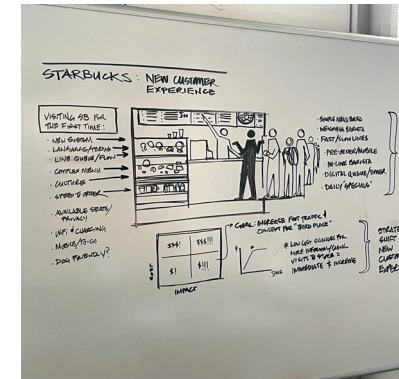 STARBUCKS: NEW CUSTOMER
EXPERIENCE
VISITING SB FOR
THE FIRST TIME:
· NEW SYSTEM
· LANGUAGE/TERMS
· LINE QUEUE/FLOW
· COMPLEX MENU
· CULTURE
· SPEED TO ORDER
· AVAILABLE SEATS/
PRIVACY
· WIFI & CHARGING
· MOBILE/TO-GO
· DOG FRIENDLY?
· SIMPLE MENU BOARD
BARISTA
· FAST/SLOW LINES
· PRE-ORDER/MOBILE
· IN-LINE BARISTA
· DIGITAL QUEUE/TIMER
· DAILY "SPECIALS"
$$$! $$$!!!
$! $!!!
COST
IMPACT
GOAL: INCREASE FOOT TRAFFIC &
CONCEPT FOR "THIRD PLACE"
$
TIME
* LOW COST
MORE
VISITS TO STORE =
IMMEDIATE $ INCREASE
SHIFT
NEW